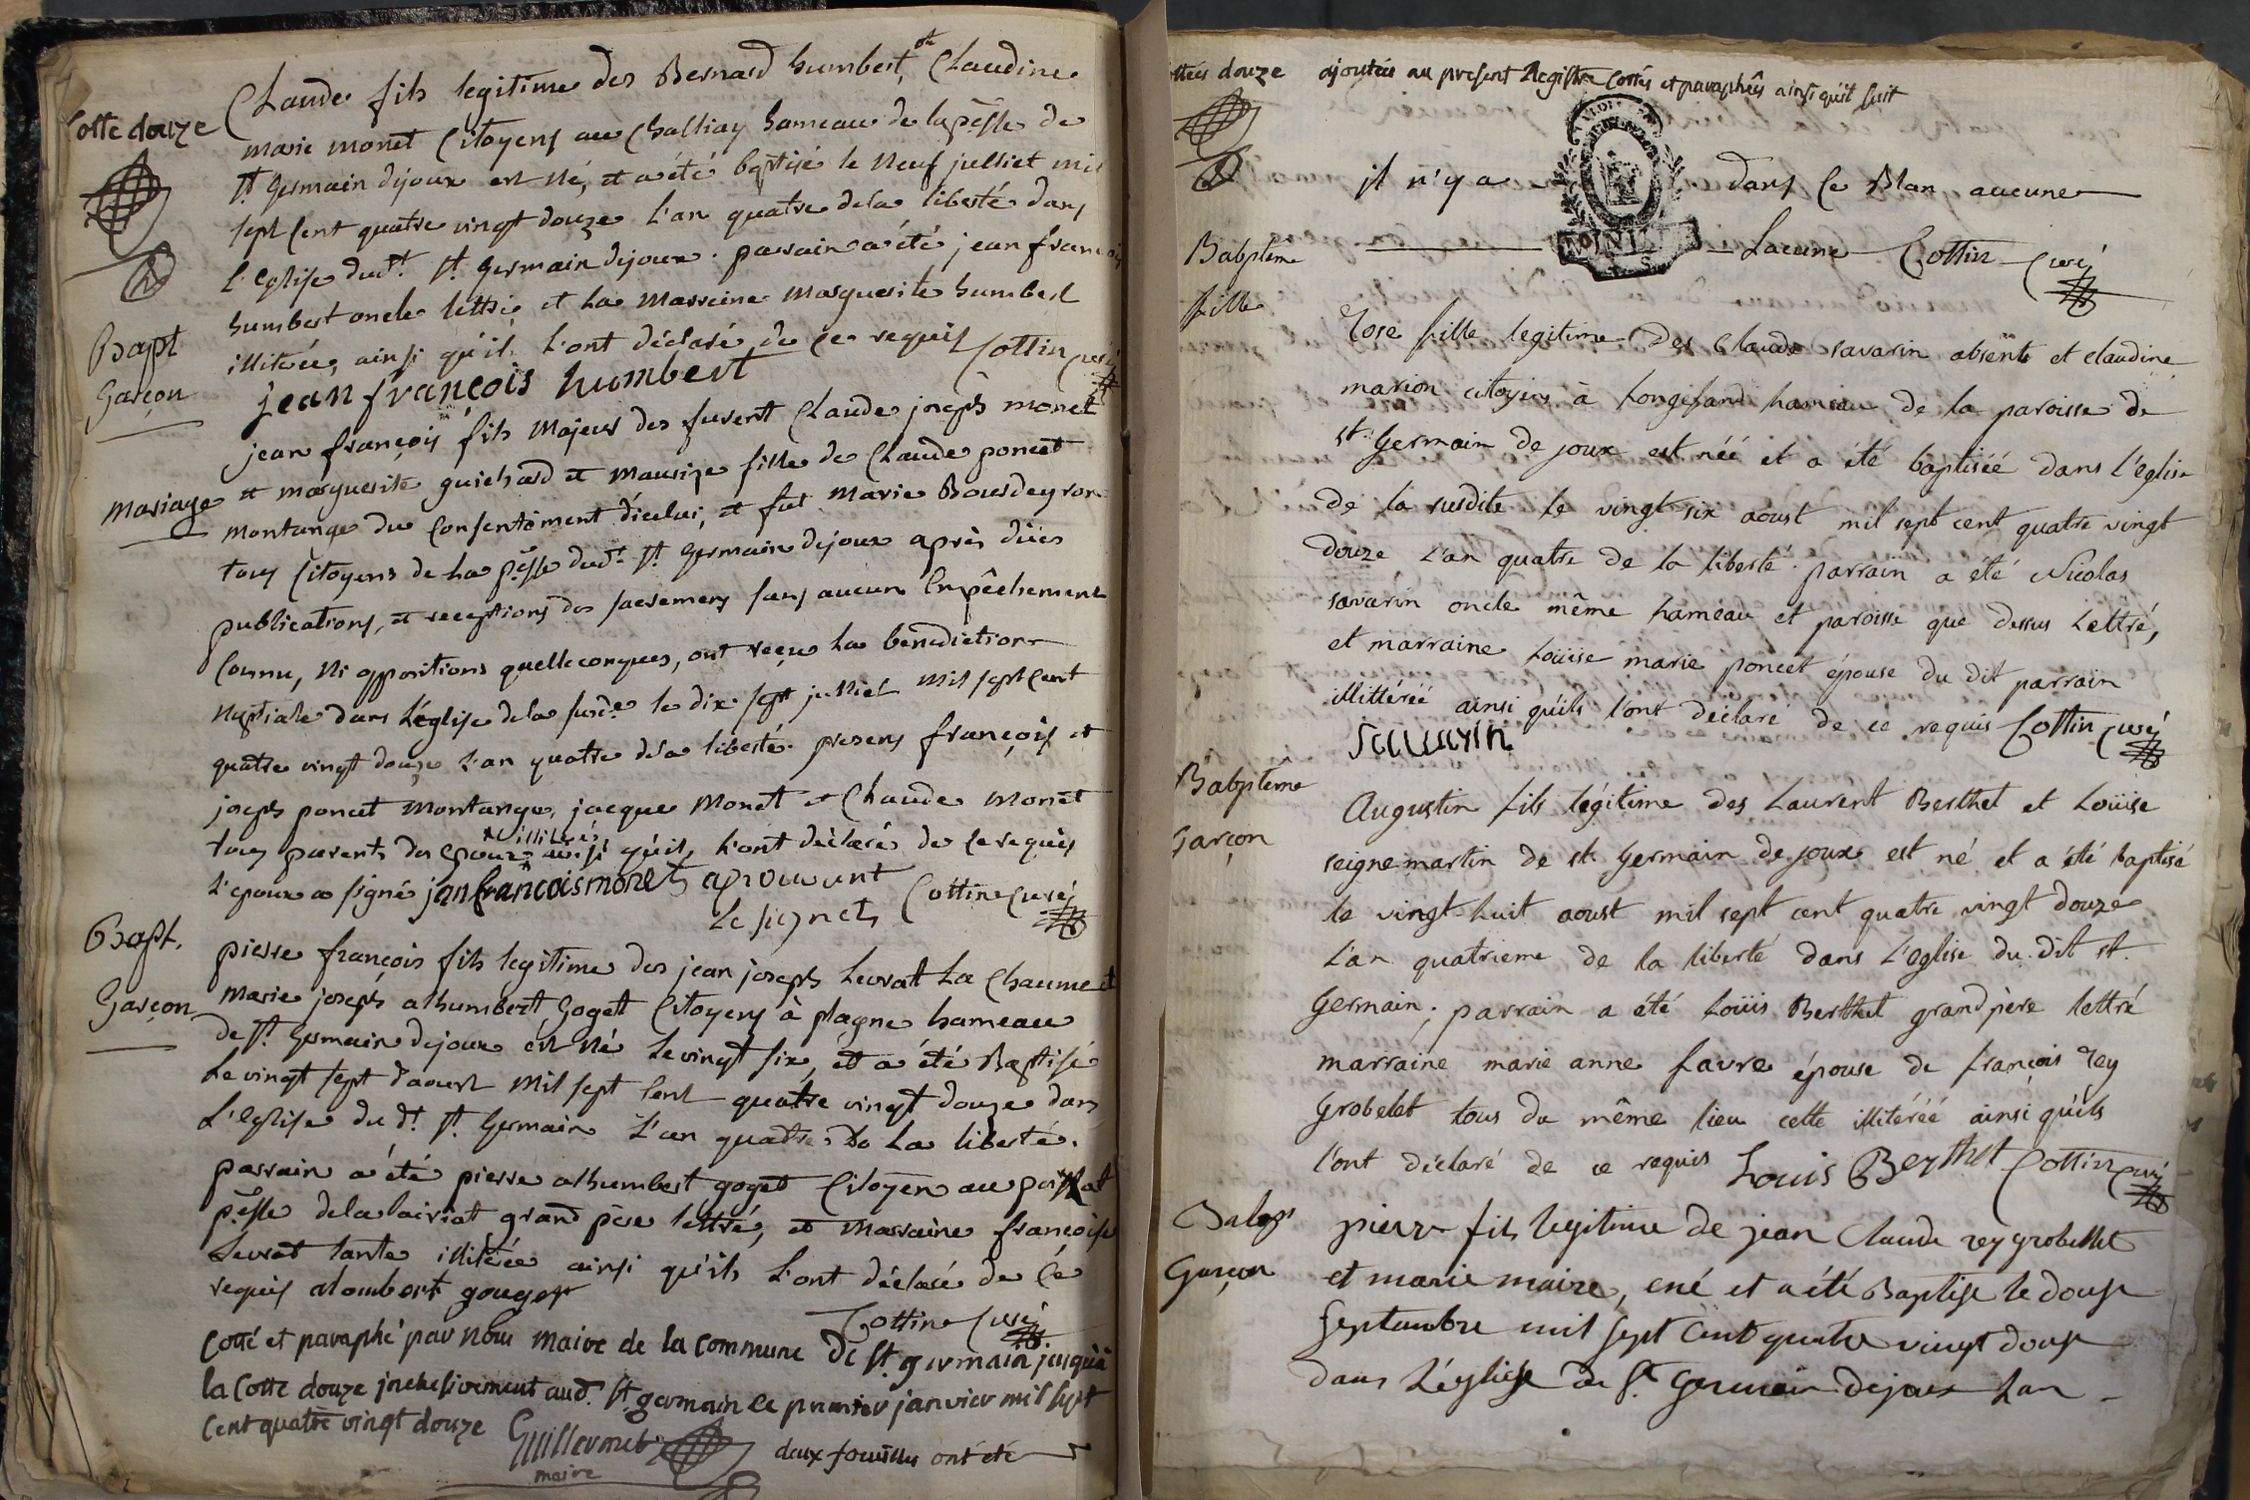 Claude fils legitime des Bernard humbert, et Claudine
Cotte douze
marie monet Citoyens au Challiay hameau de la pesse de
st Germain dijoux est né, et a été baptisé le Neuf julliet mil
sept Cent quatre vingt douze L'an quatre de la liberté dans
L'Eglise dudt. st. Germain dijoux. parrain a été jean francois
humbert oncle lettré et La Marreine marguerite humbert
illitérée, ainsi qu'ils L'ont déclaré de ce requis Cottin Curé
Bapt
Garçon
jean françois humbert
jean françois fils Majeur des furent Claude joseph monet
Mariage
et marguerite guichard et Maurize fille de Claude poncet
montange du Consentement d'icelui, et fut Marie Bourdeyron
tous Citoyens de La pesse dudt. st. Germain dijoux après dües
publications, et receptions des sacremens sans aucun Empêchement
Connu, Ni oppositions quelleconques, ont reçu La benediction
Nuptiale dans L'église de la susde le dix sept julliet Mil sept Cent
quatre vingt douze L'an quatre de la liberté. presens françois et
joseph poncet Montange, jacque Monet et Claude Monet
tous parents des epoux illitérés ainsi qu'ils L'ont déclaré de ce requis
L'epoux a signé jan françois monet aprouvant
Le signet Cottin Curé
Bapt.
Garçon
pierre françois fils legitime des jean joseph Levrat La Chaume et
Marie joseph alhumbert Goget Citoyens à plagne hameau
de st. Germain dejoux est né Le vingt six, et a été Baptisé
Le vingt sept d'aoust Mil sept Cent quatre vingt douze dans
L'eglise du dt. st. Germain L'an quatre De La liberté.
parrain a été pierre alhumbert goget Citoyen au poizat
pesse de lalairiat grand père lettré, et Marraine françoise
Levrat tante illitérée ainsi qu'ils L'ont déclaré de Ce
requis alombert gouget
Cottin Curé
Cotté et paraphé par Nous maire de la commune De st. germain jusqu'à
la Cotte douze inclusivement aud. st. germain le premier janvier mil sept
Cent quatre vingt douze Guillermet
maire
deux feuilles ont été
Cottés douze ajoutés au present Registre Cottés et paraphés ainsi quil suit
il n'y a dans Ce Blan aucune
Lacune Cottin Curé
Babptême
fille
Rose fille legitime Des Claude savarin absent et claudine
marion citoyens à Longefand hameau de la paroisse de
st. Germain de joux est néé et a été baptiséé dans l'église
de la susdite le vingt six aoust mil sept cent quatre vingt
douze L'an quatre de la liberté. parrain a été Nicolas
savarin oncle même hameau et paroisse que dessus Lettré,
et marraine Loüise marie poncet épouse du dit parrain
illittéréé ainsi qu'ils l'ont déclaré de ce requis Cottin Curé
Savarin
Babptême
Garçon
Augustin fils légitime des Laurent Berthet et Loüise
seignemartin de st Germain de joux est né et a été baptisé
le vingt-huit aoust mil sept cent quatre vingt douze
L'an quatrieme de la liberté dans L'eglise du dit st.
Germain; parrain a été Loüis Berthet grand père lettré
marraine marie anne favre épouse de françois Rey
Grobelet tous du même lieu cette illitéréé ainsi qu'ils
l'ont déclaré de ce requis Louis Berthet Cottin Curé
Garçon
pierre fils legitime de jean Claude rey grobellet
et marie maire, ené et a été Baptise le douse
Septembre mil Sept Cent quatre vingt douse
dans L'église de St. Germain dejoux Lan